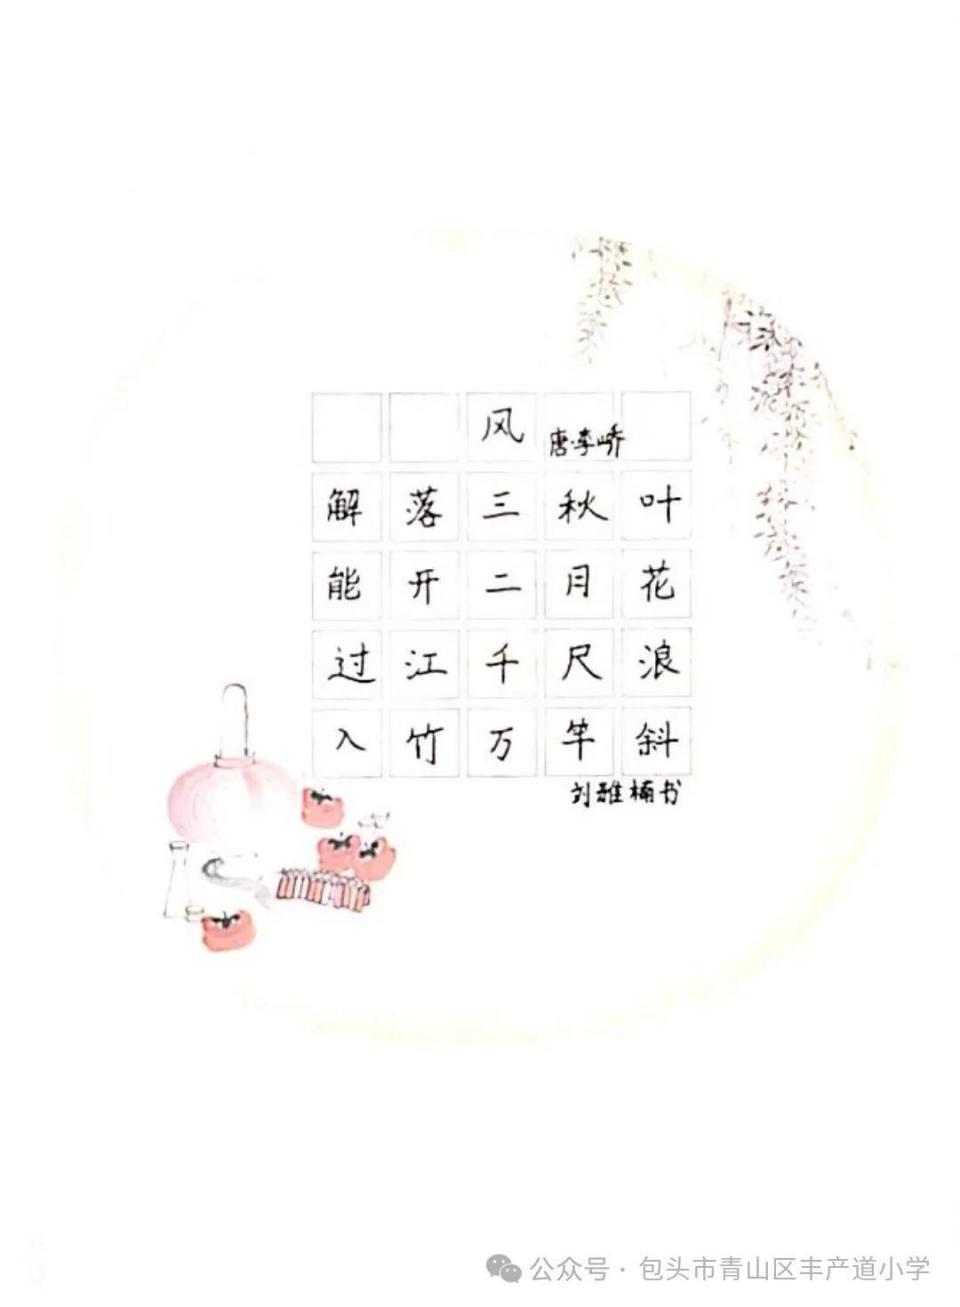 风
唐·李峤
解落三秋叶
能开二月花
过江千尺浪
入竹万竿斜
刘雅楠书
公众号·包头市青山区丰产道小学